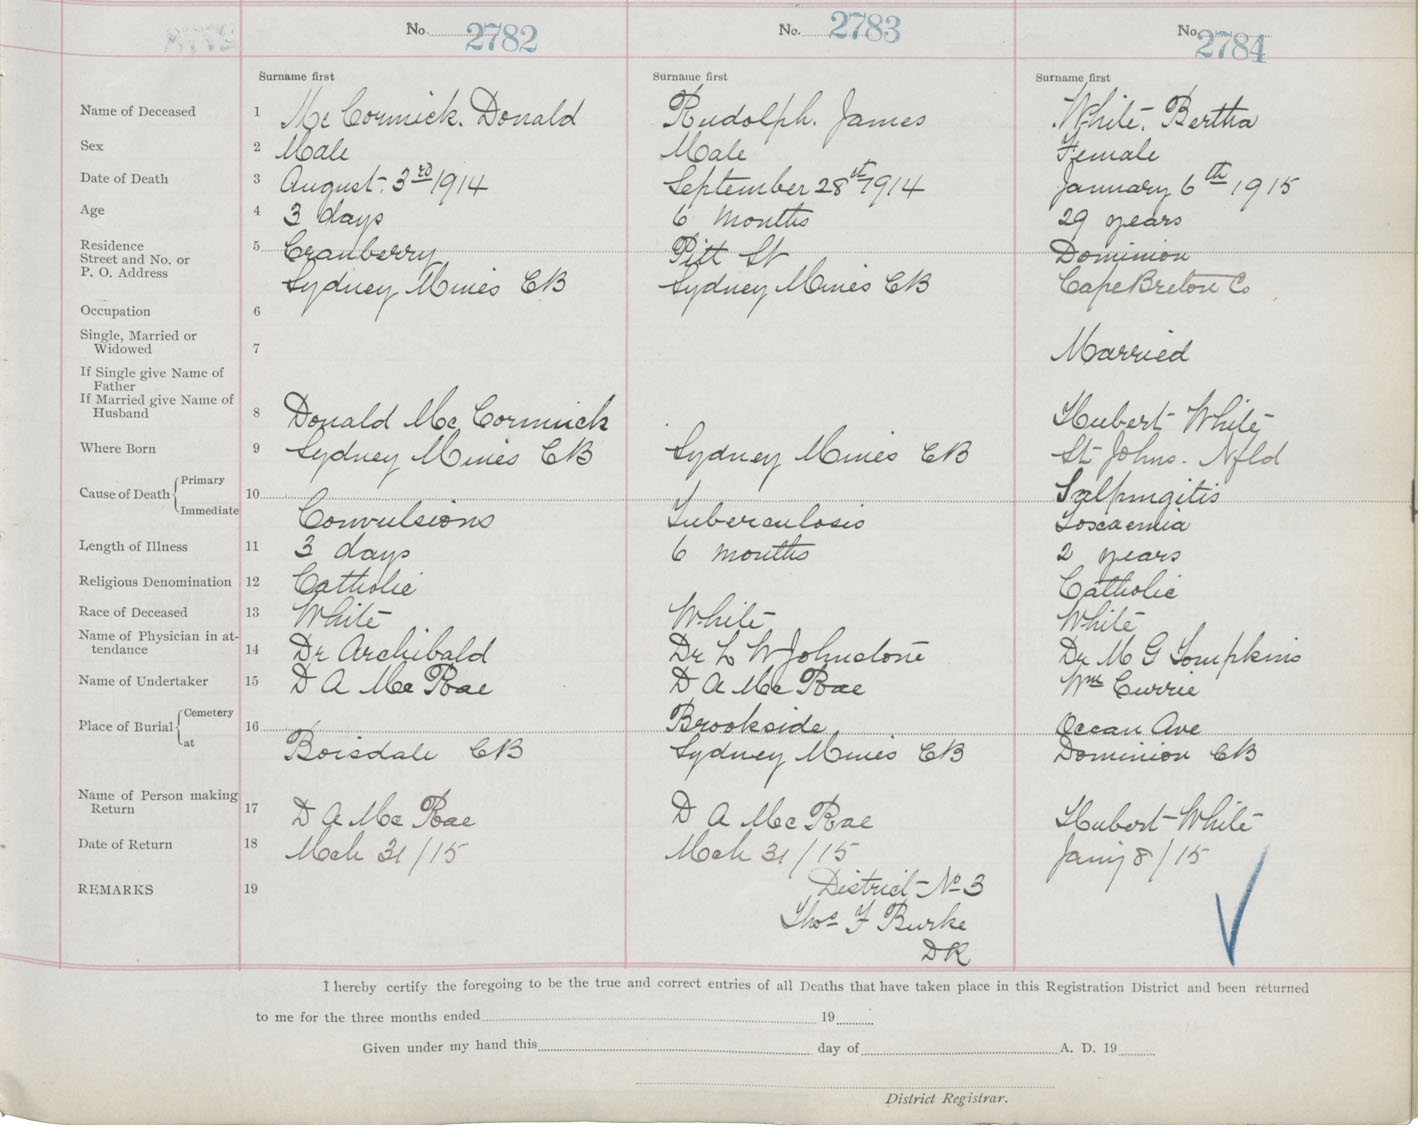 No. 2782 No. 2783 No. 2784
Surname first Surname first Surname first
Name of Deceased 1 Mc Cormick. Donald Rudolph. James White. Bertha
Sex 2 Male Male Female
Date of Death 3 August. 3rd 1914 September 28th 1914 January 6th 1915
Age 4 3 days 6 months 29 years
Residence 5 Cranberry Pitt St Dominion
Street and No. or
P. O. Address Sydney Mines CB Sydney Mines CB Cape Breton Co
Occupation 6
Single, Married or
Widowed 7 Married
If Single give Name of
Father
If Married give Name of
Husband 8 Donald Mc Cormick Hubert White
Where Born 9 Sydney Mines CB Sydney Mines CB St Johns. Nfld
Cause of Death Primary 10 Salpingitis
Immediate Convulsions Tuberculosis Toscaemia
Length of Illness 11 3 days 6 months 2 years
Religious Denomination 12 Catholic Catholic
Race of Deceased 13 White White White
Name of Physician in at-
tendance 14 Dr Archibald Dr L W Johnstone Dr M G Tompkins
Name of Undertaker 15 D A Mc Rae D A Mc Rae Wm Currie
Place of Burial Cemetery 16 Brookside Ocean Ave
at Boisdale CB Sydney Mines CB Dominion CB
Name of Person making
Return 17 D A Mc Rae D A Mc Rae Hubert White
Date of Return 18 Mch 31/15 Mch 31/15 Jany 8/15
REMARKS 19 District No 3
Thos F Burke
DR
I hereby certify the foregoing to be the true and correct entries of all Deaths that have taken place in this Registration District and been returned
to me for the three months ended 19
Given under my hand this day of A. D. 19
District Registrar.